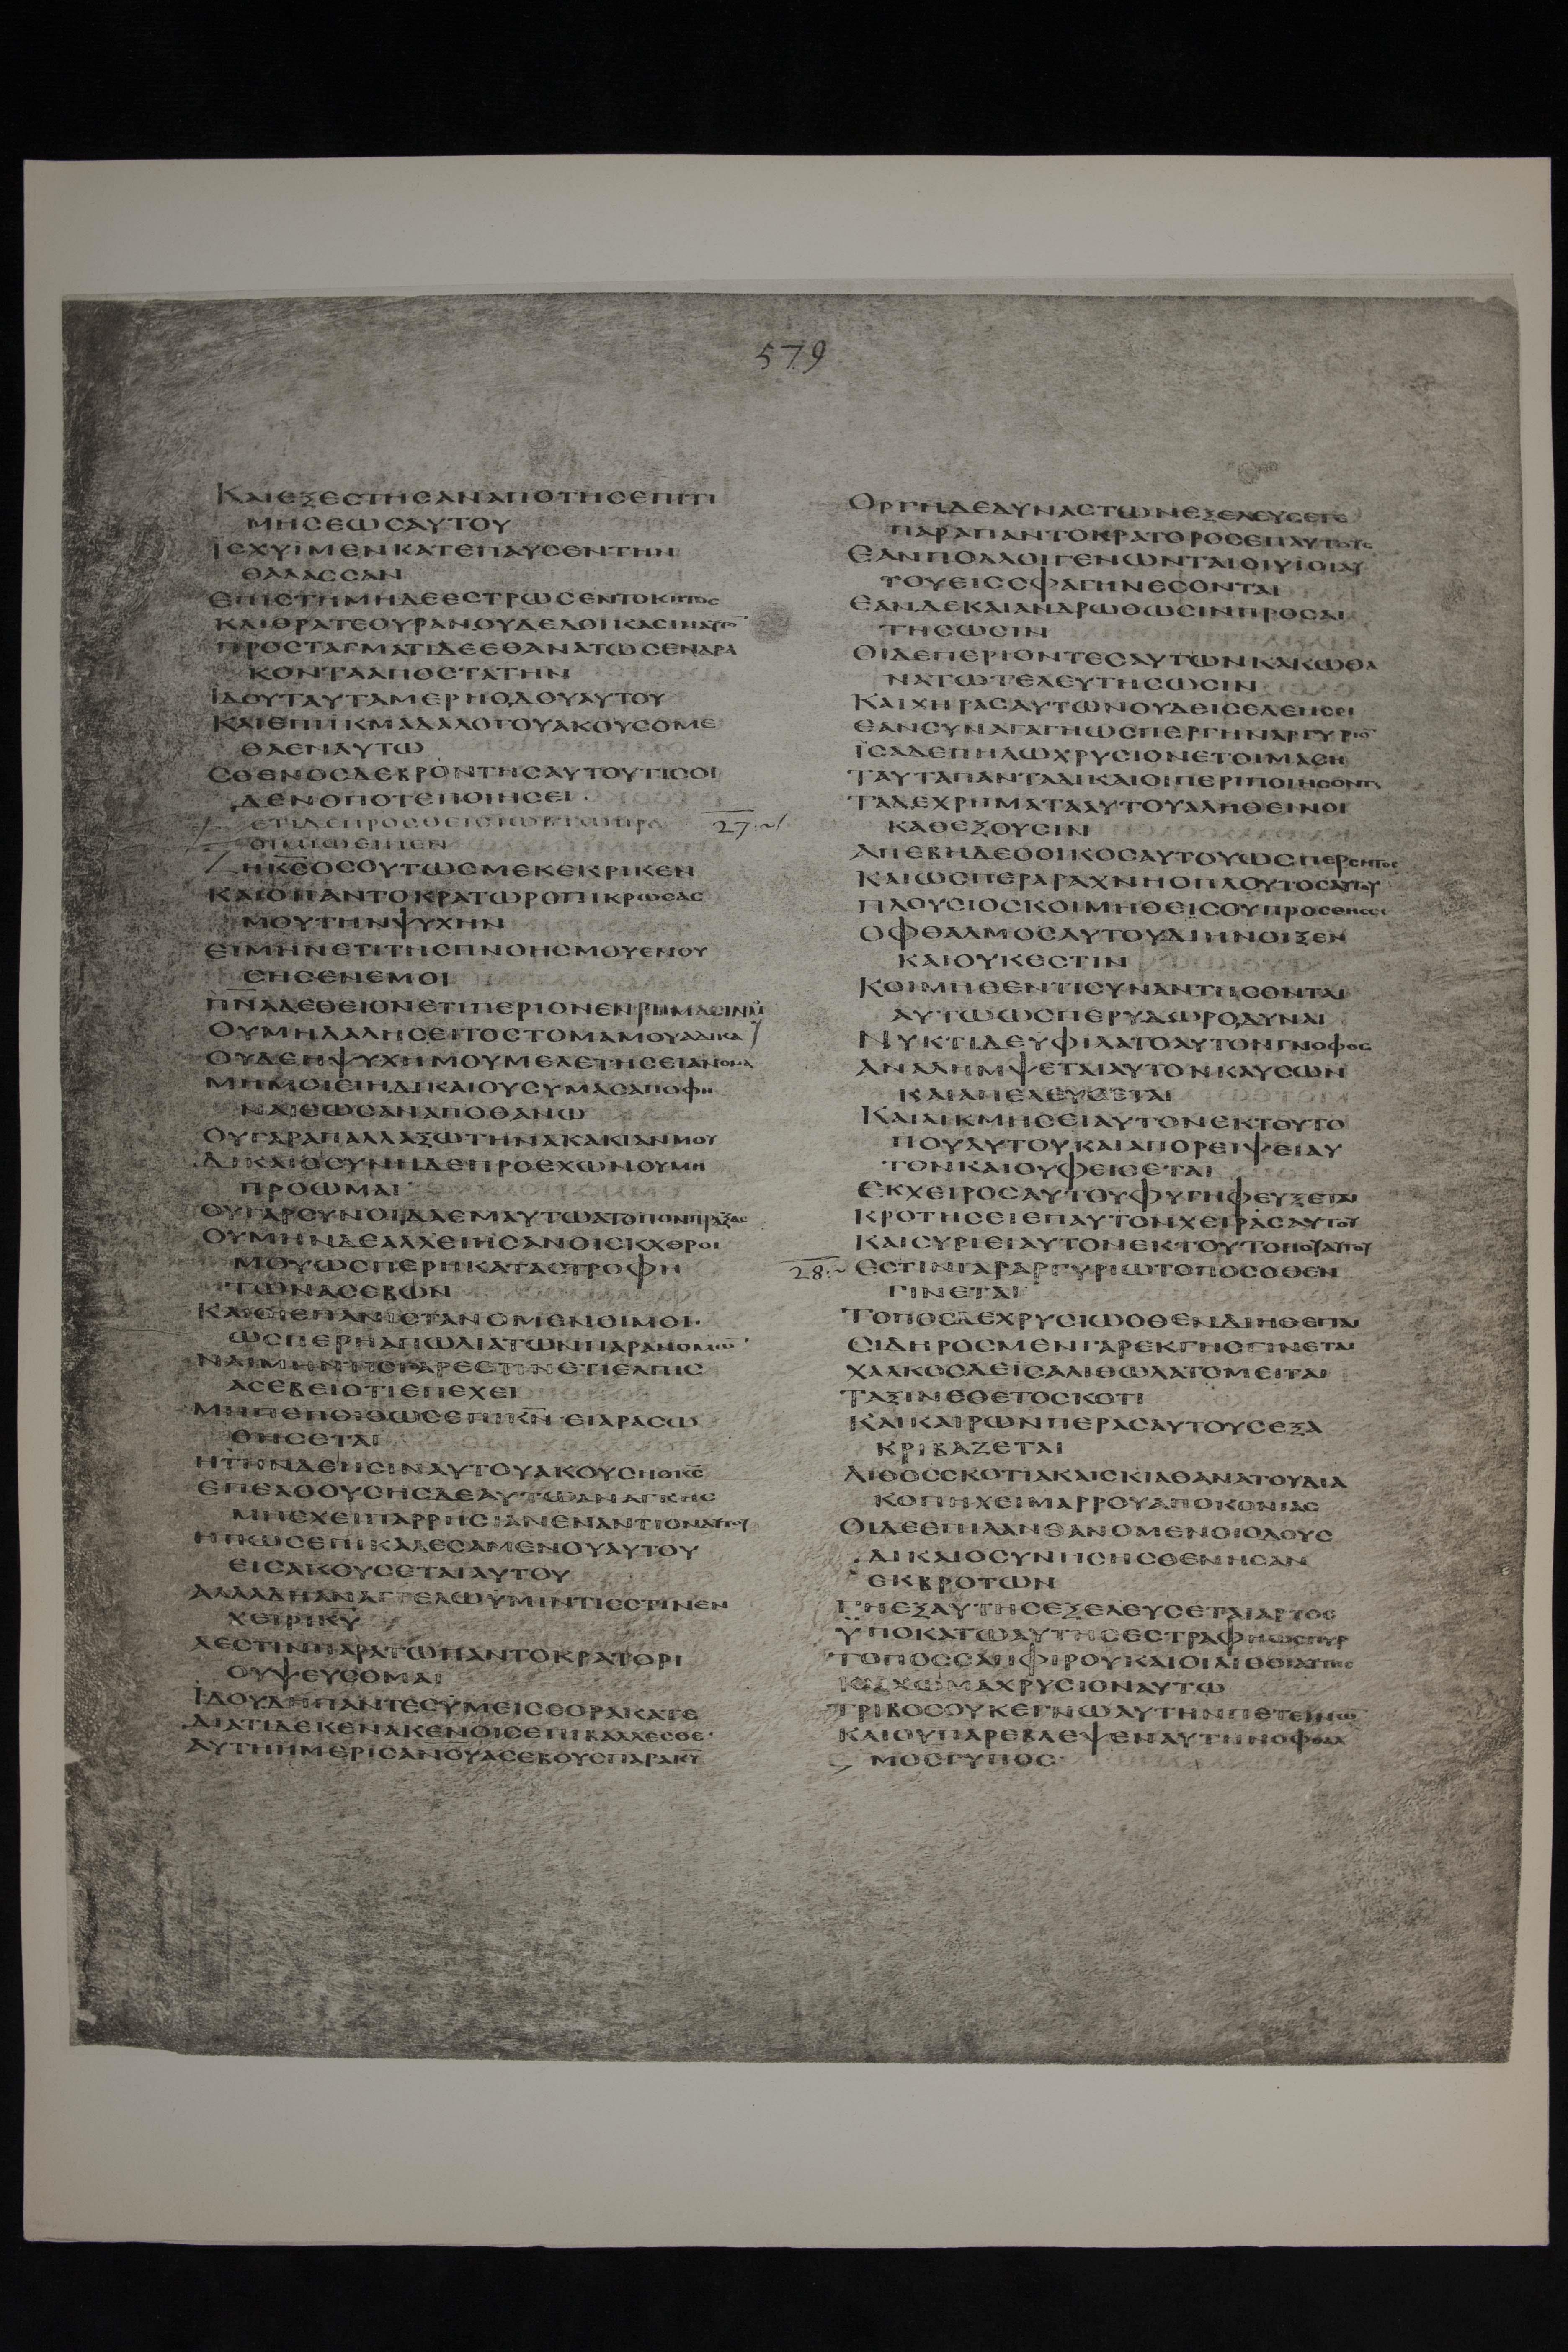 579
ΚΑΙΕΞΕΣΤΗΣΑΝΑΠΟΤΗΣΕΠΙΤΙ
ΜΗΣΕΩΣΑΥΤΟΥ
ΪΣΧΥΪΜΕΝΚΑΤΕΠΑΥΣΕΝΤΗΝ
ΘΑΛΑΣΣΑΝ
ΕΠΙΣΤΗΜΗΔΕΕΣΤΡΩΣΕΝΤΟΚΗΤΟΣ
ΚΛΙΘΡΑΤΕΟΥΡΑΝΟΥΔΕΔΟΙΚΑΣΙΝΑΥΤΟ̅
ΠΡΟΣΤΑΓΜΑΤΙΔΕΕΘΑΝΑΤΩΣΕΝΔΡΑ
ΚΟΝΤΑΑΠΟΣΤΑΤΗΝ
ΪΔΟΥΤΑΥΤΑΜΕΡΗΟΔΟΥΑΥΤΟΥ
ΚΑΙΕΠΙΙΚΜΑΔΑΛΟΓΟΥΑΚΟΥΣΟΜΕ
ΘΑΕΝΑΥΤΩ
ΣΘΕΝΟΣΔΕΒΡΟΝΤΗΣΑΥΤΟΥΤΙΣΟΙ
ΔΕΝΟΠΟΤΕΠΟΙΗΣΕΙ
27
ΕΤΙΔΕΠΡΟΣΘΕΙΣΙΩΒΤΩΠΡΟ
ΟΙΜΙΩΕΙΠΕΝ
ΖΗΚ̅Σ̅ΟΣΟΥΤΩΣΜΕΚΕΚΡΙΚΕΝ
ΚΑΙΟΠΑΝΤΟΚΡΑΤΩΡΟΠΙΚΡΩΣΑΣ
ΜΟΥΤΗΝΨΥΧΗΝ
ΕΙΜΗΝΕΤΙΤΗΣΠΝΟΗΣΜΟΥΕΝΟΥ
ΣΗΣΕΝΕΜΟΙ
Π̅Ν̅Α̅ΔΕΘΕΙΟΝΕΤΙΠΕΡΙΟΝΕΝΡΙΝΜΑΣΙΝΜΟΥ
ΟΥΜΗΛΑΛΗΣΕΙΤΟΣΤΟΜΑΜΟΥΑΔΙΚΑ
ΟΥΔΕΗΨΥΧΗΜΟΥΜΕΛΕΤΗΣΕΙΑΝΟΜΑ
ΜΗΜΟΙΕΙΗΔΙΚΑΙΟΥΣΥΜΑΣΑΠΟΦΗ
ΝΑΙΕΩΣΑΝΑΠΟΘΑΝΩ
ΟΥΓΑΡΑΠΑΛΛΑΞΩΤΗΝΑΚΑΚΙΑΝΜΟΥ
ΔΙΚΑΙΟΣΥΝΗΔΕΠΡΟΕΧΩΝΟΥΜΗ
ΠΡΟΩΜΑΙ
ΟΥΓΑΡΣΥΝΟΙΔΑΕΜΑΥΤΩΑΤΟΠΟΝΠΡΑΞΑΣ
ΟΥΜΗΝΔΕΑΛΛΕΙΗΣΑΝΟΙΕΚΧΘΡΟΙ
ΜΟΥΩΣΠΕΡΗΚΑΤΑΣΤΡΟΦΗ
ΤΩΝΑΣΕΒΩΝ
ΚΑΙΟΙΕΠΑΝΙΣΤΑΝΟΜΕΝΟΙΜΟΙ
ΩΣΠΕΡΗΑΠΩΛΙΑΤΩΝΠΑΡΑΝΟΜΩ̅
ΑΣΕΒΕΙΟΤΙΕΠΕΧΕΙ
ΜΗΠΕΠΟΙΘΩΣΕΠΙΚ̅Ν̅ΕΙΑΡΑΣΩ
ΘΗΣΕΤΑΙ
ΗΤΗΝΔΕΗΣΙΝΑΥΤΟΥΑΚΟΥΣΗΟΚ̅Σ̅
ΕΠΕΛΘΟΥΣΗΣΔΕΑΥΤΩΑΝΑΓΚΗΣ
ΜΗΕΧΕΙΠΑΡΡΗΣΙΑΝΕΝΑΝΤΙΟΝΑΥΤΟΥ
ΗΠΩΣΕΠΙΚΑΛΕΣΑΜΕΝΟΥΑΥΤΟΥ
ΕΙΣΑΚΟΥΣΕΤΑΙΑΥΤΟΥ
ΑΛΛΑΔΗΑΝΑΓΓΕΛΩΥΜΙΝΤΙΕΣΤΙΝΕΝ
ΧΕΙΡΙΚ̅Υ̅
ΑΕΣΤΙΝΠΑΡΑΤΩΠΑΝΤΟΚΡΑΤΟΡΙ
ΟΥΨΕΥΣΟΜΑΙ
ΪΔΟΥΔΗΠΑΝΤΕΣΥΜΕΙΣΕΟΡΑΚΑΤΕ
ΔΙΑΤΙΔΕΚΕΝΑΚΕΝΟΙΣΕΠΙΒΑΛΛΕΣΘΕ
ΑΥΤΗΗΜΕΡΙΣΑΝ̅Ο̅Υ̅ΑΣΕΒΟΥΣΠΑΡΑΚ̅Υ̅
ΟΡΓΗΔΕΔΥΝΑΣΤΩΝΕΞΕΛΕΥΣΕΤΕ
ΠΑΡΑΠΑΝΤΟΚΡΑΤΟΡΟΣΕΠΑΥΤΟΥΣ
ΕΑΝΠΟΛΛΟΙΓΕΝΩΝΤΑΙΟΙΥΙΟΙΑΥ
ΤΟΥΕΙΣΣΦΑΓΗΝΕΣΟΝΤΑΙ
ΕΑΝΔΕΚΑΙΑΝΔΡΩΘΩΣΙΝΠΡΟΣΑΙ
ΤΗΣΩΣΙΝ
ΟΙΔΕΠΕΡΙΟΝΤΕΣΑΥΤΩΝΚΑΚΩΘΑ
ΝΑΤΩΤΕΛΕΥΤΗΣΩΣΙΝ
ΚΑΙΧΗΡΑΣΑΥΤΩΝΟΥΔΕΙΣΕΛΕΗΣΕΙ
ΕΑΝΣΥΝΑΓΑΓΗΩΣΠΕΡΓΗΝΑΡΓΥΡΙΟ̅
ΪΣΑΔΕΠΗΛΩΧΡΥΣΙΟΝΕΤΟΙΜΑΣΗ
ΤΑΥΤΑΠΑΝΤΑΔΙΚΑΙΟΙΠΕΡΙΠΟΙΗΣΟΝΤΑΙ
ΤΑΔΕΧΡΗΜΑΤΑΑΥΤΟΥΑΛΗΘΕΙΝΟΙ
ΚΑΘΕΞΟΥΣΙΝ
ΑΠΕΒΗΔΕΟΟΙΚΟΣΑΥΤΟΥΩΣΠΕΡΣΗΤΟΣ
ΚΑΙΩΣΠΕΡΑΡΑΧΝΗΟΠΛΟΥΤΟΣΑΥΤΟΥ
ΠΛΟΥΣΙΟΣΚΟΙΜΗΘΕΙΣΟΥΠΡΟΣΘΗΣΕΙ
ΟΦΘΑΛΜΟΣΑΥΤΟΥΔΙΗΝΟΙΞΕΝ
ΚΑΙΟΥΚΕΣΤΙΝ
ΚΟΙΜΗΘΕΝΤΙΣΥΝΑΝΤΗΣΟΝΤΑΙ
ΑΥΤΩΩΣΠΕΡΥΔΩΡΟΔΥΝΑΙ
ΝΥΚΤΙΔΕΥΦΙΛΑΤΟΑΥΤΟΝΓΝΟΦΟΣ
ΑΝΑΛΗΜΨΕΤΑΙΑΥΤΟΝΚΑΥΣΩΝ
ΚΑΙΑΠΕΛΕΥΣΕΤΑΙ
ΚΑΙΛΙΚΜΗΣΕΙΑΥΤΟΝΕΚΤΟΥΤΟ
ΠΟΥΑΥΤΟΥΚΑΙΑΠΟΡΕΙΨΕΙΑΥ
ΤΟΝΚΑΙΟΥΦΕΙΣΕΤΑΙ
ΕΚΧΕΙΡΟΣΑΥΤΟΥΦΥΓΗΦΕΥΞΕΤΑΙ
ΚΡΟΤΗΣΕΙΕΠΑΥΤΟΝΧΕΙΡΑΣΑΥΤΟΥ
ΚΑΙΣΥΡΙΕΙΑΥΤΟΝΕΚΤΟΥΤΟΠΟΥΑΥΤΟΥ
28
ΕΣΤΙΝΓΑΡΑΡΓΥΡΙΩΤΟΠΟΣΟΘΕΝ
ΓΙΝΕΤΑΙ
ΤΟΠΟΣΔΕΧΡΥΣΙΩΟΘΕΝΔΙΗΘΕΙΤΑΙ
ΣΙΔΗΡΟΣΜΕΝΓΑΡΕΚΓΗΣΓΙΝΕΤΑΙ
ΧΑΛΚΟΣΔΕΪΣΑΛΙΘΩΛΑΤΟΜΕΙΤΑΙ
ΤΑΞΙΝΕΘΕΤΟΣΚΟΤΙ
ΚΑΙΚΑΙΡΩΝΠΕΡΑΣΑΥΤΟΥΣΕΞΑ
ΚΡΙΒΑΖΕΤΑΙ
ΛΙΘΟΣΣΚΟΤΙΑΚΑΙΣΚΙΑΘΑΝΑΤΟΥΔΙΑ
ΚΟΠΗΧΕΙΜΑΡΡΟΥΑΠΟΚΟΝΙΑΣ
ΟΙΔΕΕΠΙΛΑΝΘΑΝΟΜΕΝΟΙΟΔΟΥΣ
ΔΙΚΑΙΟΣΥΝΗΣΗΣΘΕΝΗΣΑΝ
ΕΚΒΡΟΤΩΝ
ΓΗΕΞΑΥΤΗΣΕΞΕΛΕΥΣΕΤΑΙΑΡΤΟΣ
ΫΠΟΚΑΤΩΑΥΤΗΣΕΣΤΡΑΦΗΩΣΠΥΡ
ΤΟΠΟΣΣΑΠΦΙΡΟΥΚΑΙΟΙΛΙΘΟΙΑΥΤΗΣ
ΚΑΙΧΩΜΑΧΡΥΣΙΟΝΑΥΤΩ
ΤΡΙΒΟΣΟΥΚΕΓΝΩΑΥΤΗΝΠΕΤΕΙΝΟ̅
ΚΑΙΟΥΠΑΡΕΒΛΕΨΕΝΑΥΤΗΝΟΦΘΑΛ
ΜΟΣΓΥΠΟΣ